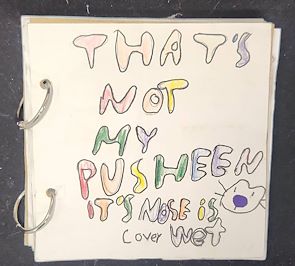 THAT'S
NOT
MY
PUSHEEN
IT'S NOSE IS
Cover Wet